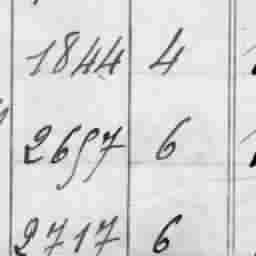 1844 4
2657 6
2717 6